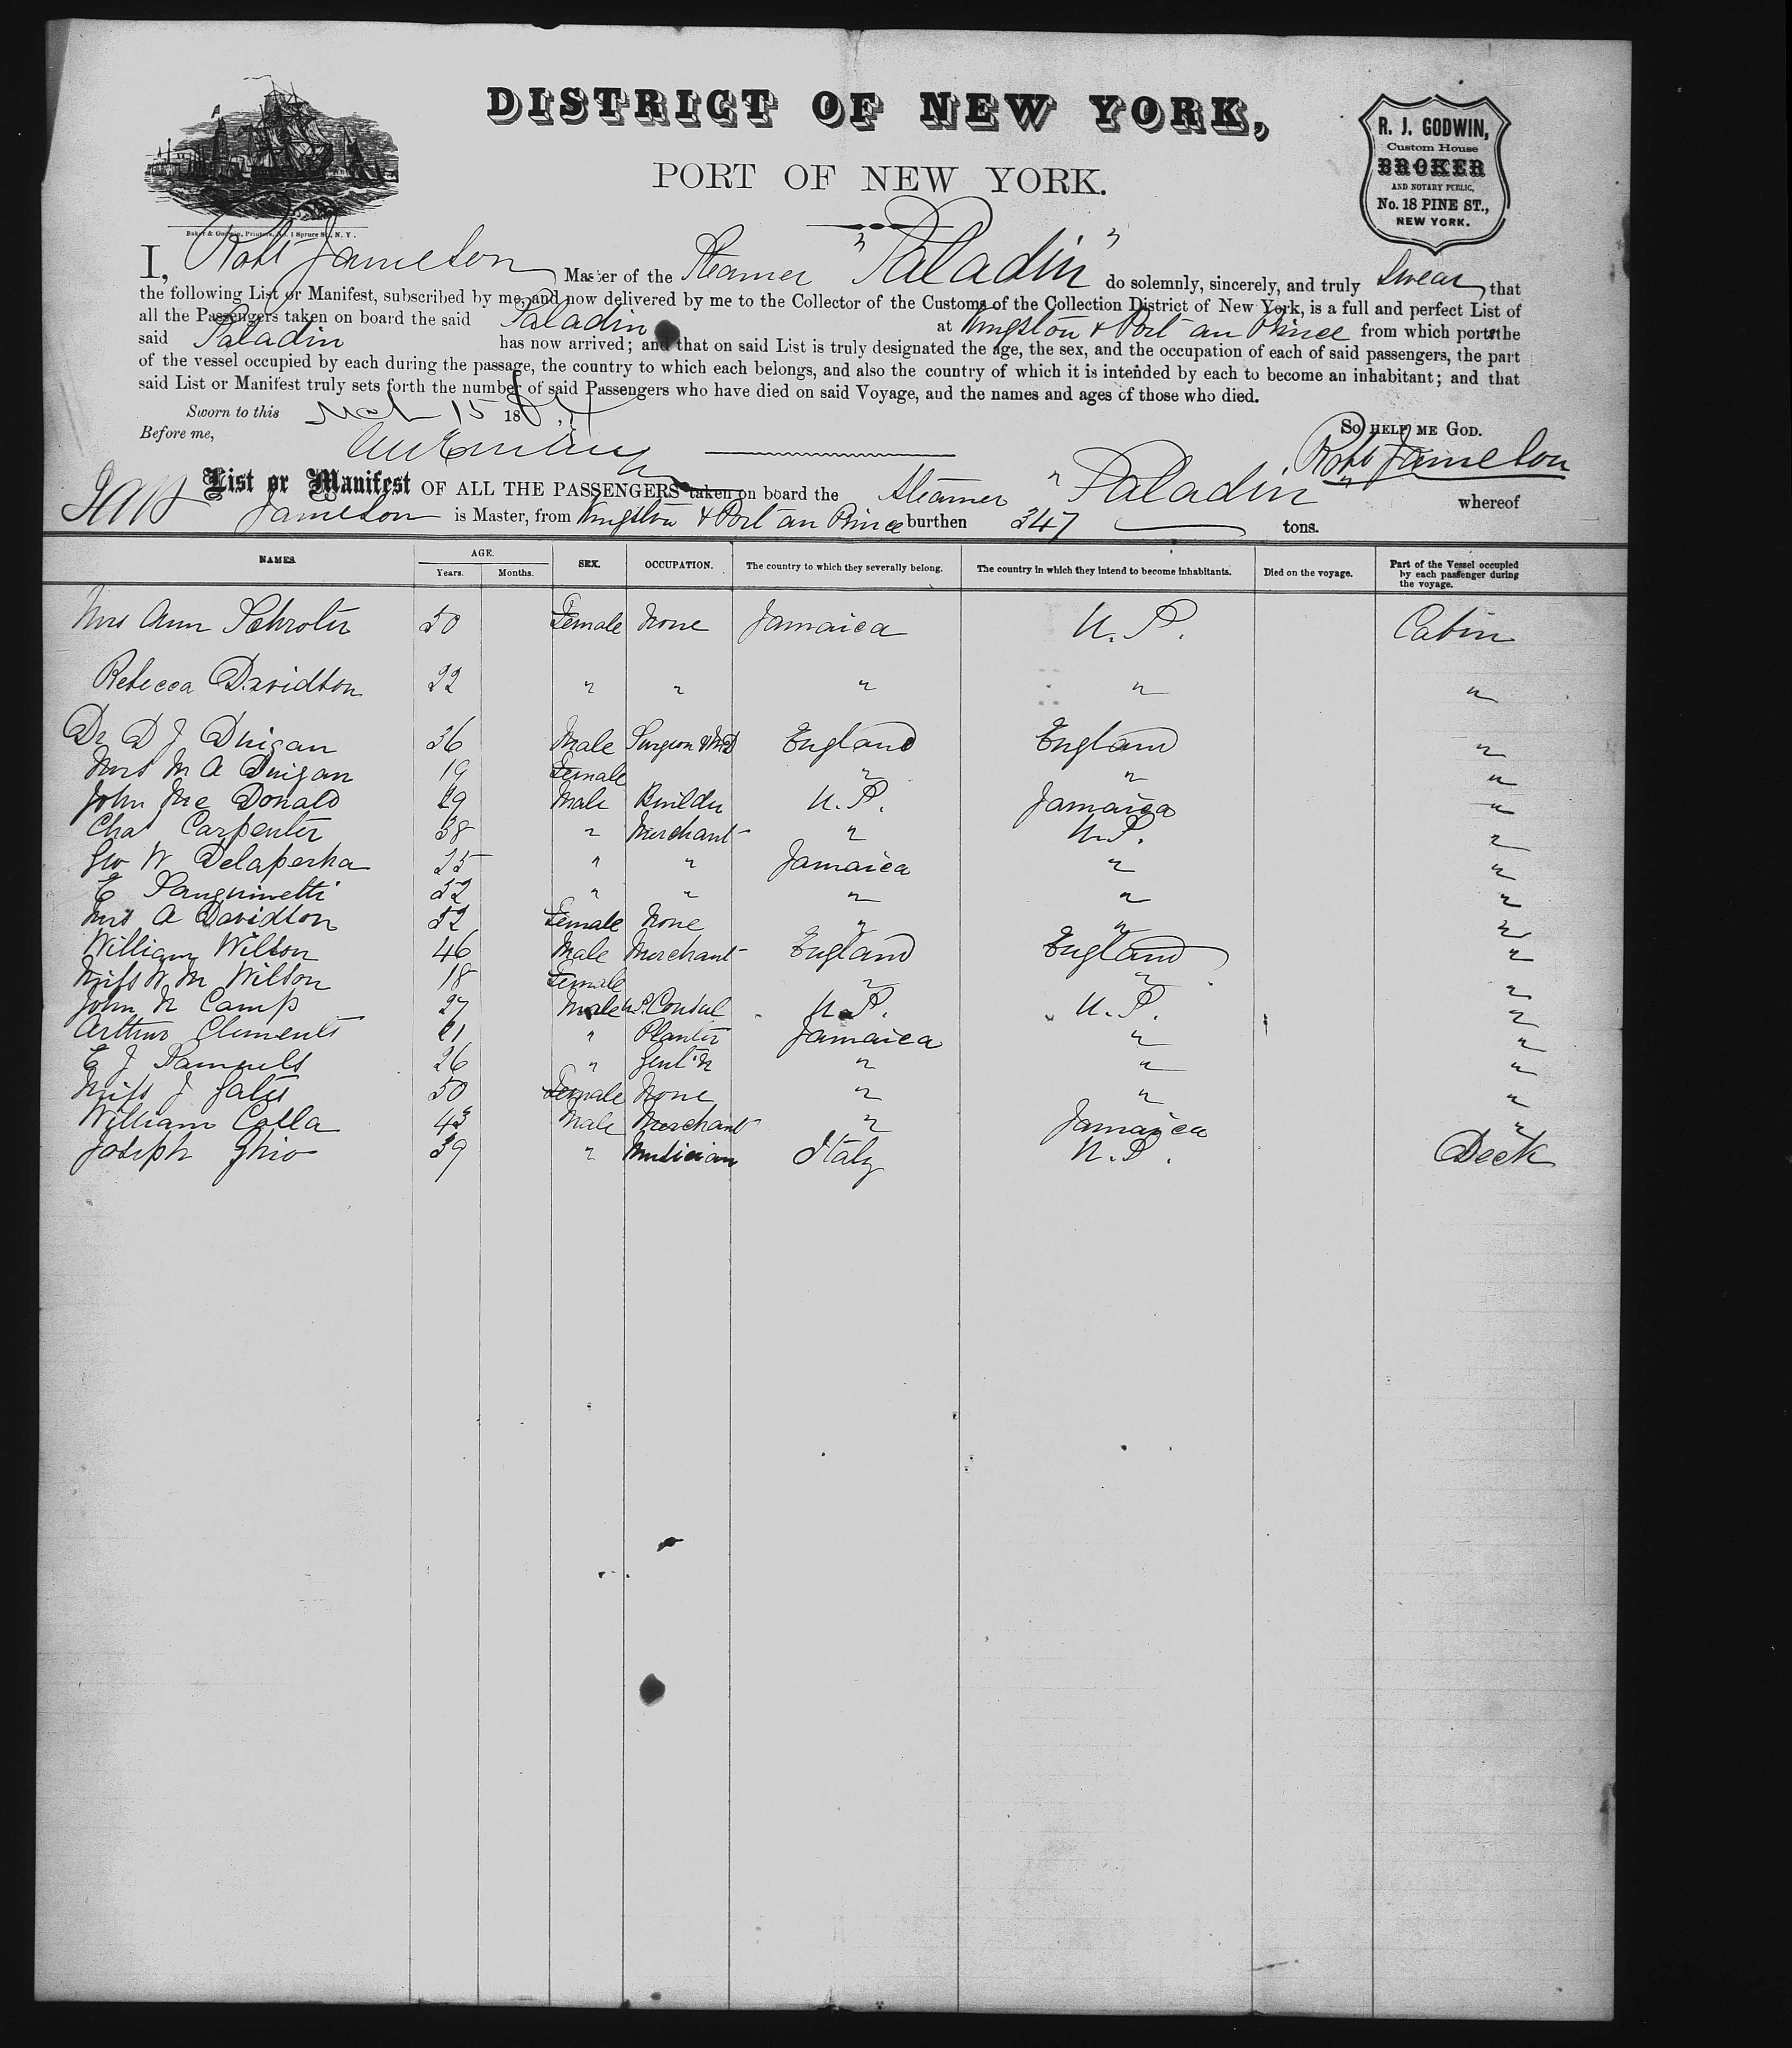 DISTRICT OF NEW YORK,
PORT OF NEW YORK.
R. J. GODWIN,
Custom House
BROKER
AND NOTARY PUBLIC,
No. 18 PINE ST.,
NEW YORK.
Baker & Godwin, Printers, No. 1 Spruce St., N. Y.
I, Robt Jameson Master of the Steamer "Paladin" do solemnly, sincerely, and truly swear that
the following List or Manifest, subscribed by me, and now delivered by me to the Collector of the Customs of the Collection District of New York, is a full and perfect List of
all the Passengers taken on board the said Paladin at Kingston & Port au Prince from which ports the
said Paladin has now arrived; and that on said List is truly designated the age, the sex, and the occupation of each of said passengers, the part
of the vessel occupied by each during the passage, the country to which each belongs, and also the country of which it is intended by each to become an inhabitant; and that
said List or Manifest truly sets forth the number of said Passengers who have died on said Voyage, and the names and ages of those who died.
Sworn to this 15 18
Before me,
SO HELP ME GOD.
Robt Jameson
List or Manifest OF ALL THE PASSENGERS taken on board the Steamer "Paladin" whereof
Jameson is Master, from Kingston & Port au Prince burthen 347 tons.
NAMES. AGE. Years. Months. SEX. OCCUPATION. The country to which they severally belong. The country in which they intend to become inhabitants. Died on the voyage. Part of the Vessel occupied by each passenger during the voyage.
Mrs Ann Schroter 50 Female None Jamaica U.S. Cabin
Rebecca Davidson 22 " " " " "
Dr D J Duigan 36 Male Surgeon England England "
Mrs M A Duigan 19 Female " " "
John Mc Donald 29 Male Builder U.S. Jamaica "
Chas Carpenter 38 " Merchant " U.S. "
Geo W Delapenha 25 " " Jamaica " "
E Sanguinetti 32 " " " " "
Mrs A Davidson 52 Female None " " "
William Wilson 46 Male Merchant England England "
Miss W M Wilson 18 Female " " "
John N Camp 27 Male U.S. Consul U.S. U.S. "
Arthur Clements 61 " Planter Jamaica " "
E J Samuels 26 " Gent'n " " "
Miss J Gates 50 Female None " " "
William Colla 43 Male Merchant " Jamaica "
Joseph Ghio 39 " Musician Italy U.S. Deck